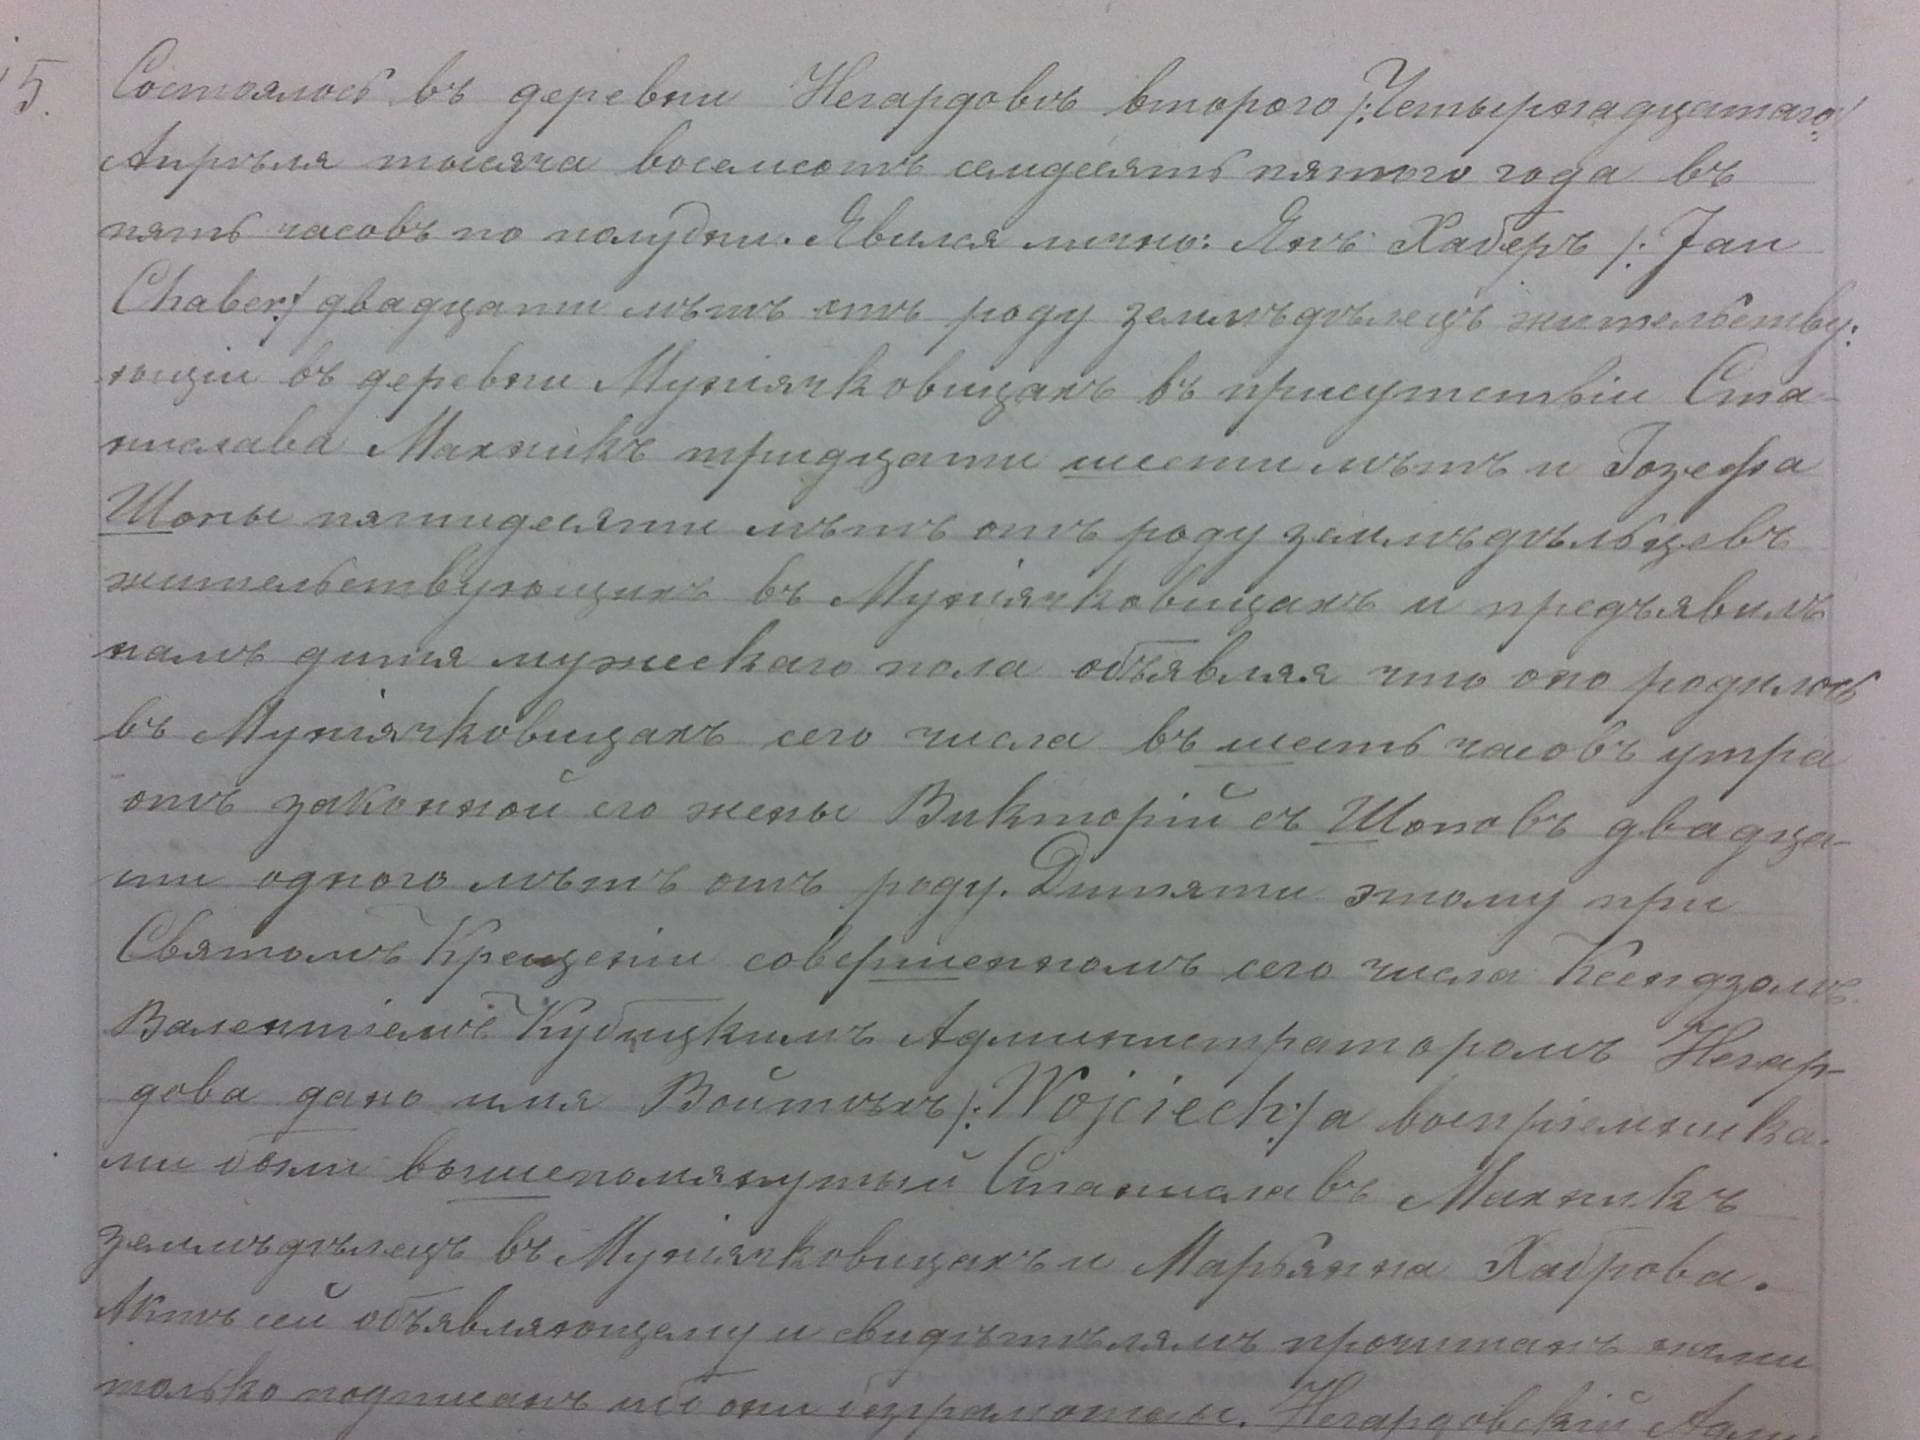 15.
Состоялось въ деревни Негардовъ второго /:Четырнадцатаго/
Апрѣля тысяча восемсотъ семдесятъ пятого года въ
пять часовъ по полудни. Явился лично: Янъ Хаберъ /: Jan
Chaber:/ двадцати лѣтъ отъ роду земледѣлецъ жительству:
ющіи въ деревни Муніячковицахъ въ присутствіи Ста-
нислава Махникъ тридцати шести лѣтъ и Іозефа
Шопы пятидесяти лѣтъ отъ роду земледѣльцевъ
жительствующихъ въ Муніячковицахъ и предъявилъ
намъ дитя мужескаго пола объявляя что оно родилось
въ Муніячковицахъ сего числа въ шесть часовъ утра
отъ законной его жены Викторій съ Шоповъ двадца-
ти одного лѣтъ отъ роду. Дитяти этому при
Святомъ Крещеніи совершенномъ сего числа Ксендзомъ
Валентіемъ Кубицкимъ Администраторомъ Негар-
дова дано имя Войтѣхъ /: Wojciech:/ а воспріемника-
ми были вышепомянутый Станиславъ Махникъ
земледѣлецъ въ Муніячковицахъ и Марьянна Хаброва.
Актъ сей объявляющему и свидѣтѣлямъ прочитанъ нами
только подписанъ ибо они безграмотны. Негардовскій